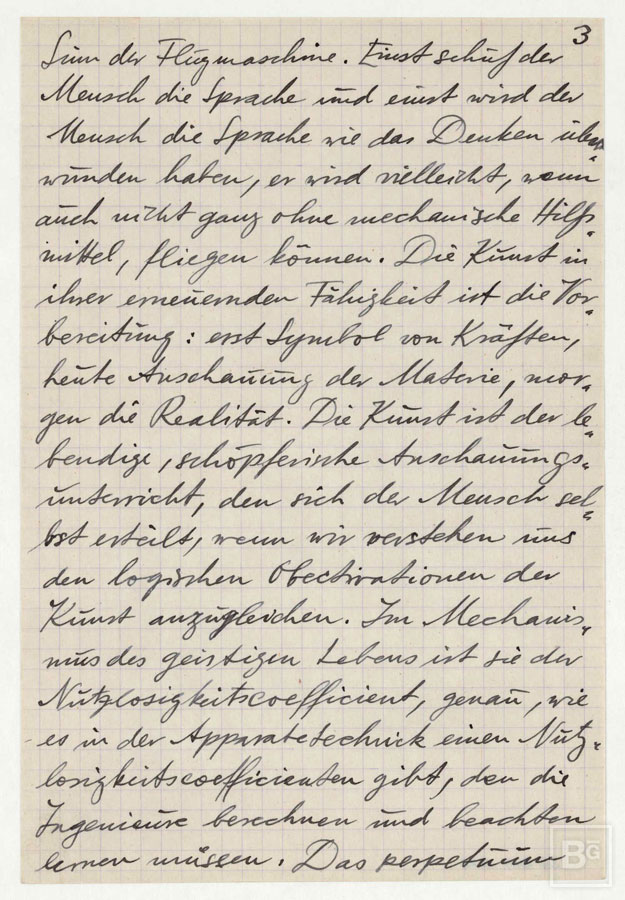 3
Sinn der Flugmaschine. Einst schuf der
Mensch die Sprache und einst wird der
Mensch die Sprache wie das Denken über„
wunden haben, er wird vielleicht, wenn
auch nicht ganz ohne mechanische Hilfs„
mittel, fliegen können. Die Kunst in
ihrer erneuernden Fähigkeit ist die Vor„
bereitung: erst Symbol von Kräften,
heute Anschauung der Materie, mor„
gen die Realität. Die Kunst ist der le„
bendige, schöpferische Anschauungs„
unterricht, den sich der Mensch sel„
bst erteilt, wenn wir verstehen uns
den logischen Obectivationen der
Kunst anzugleichen. Im Mechanis„
mus des geistigen Lebens ist sie der
Nutzlosigkeitscoefficient, genau, wie
es in der Apparatetechnick einen Nutz„
losigkeitscoefficienten gibt, den die
Ingenieure berechnen und beachten
lernen müssen. Das perpetuum
BG